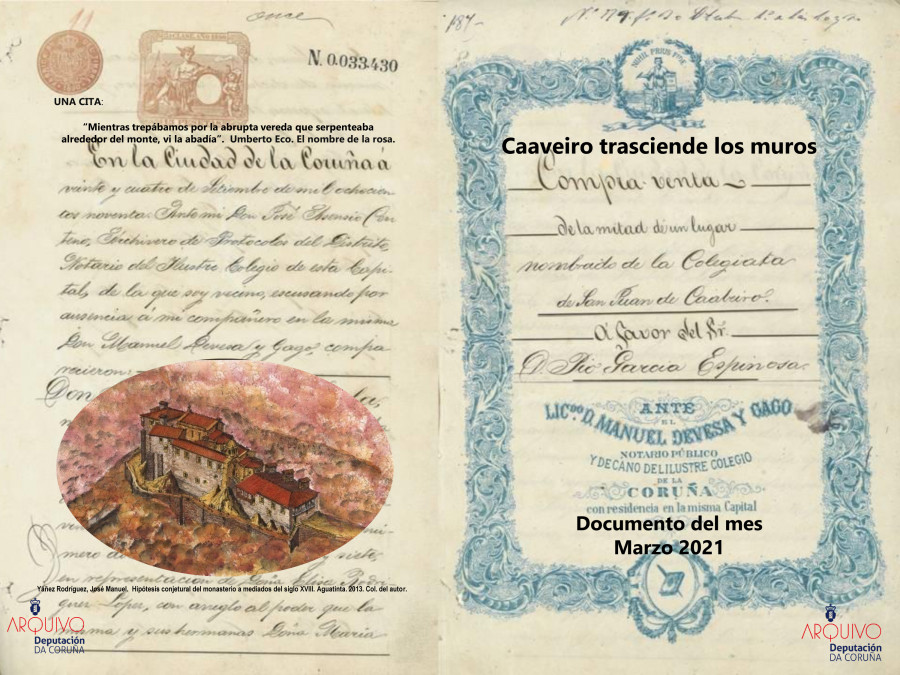 11
once
N. 0.033.430
UNA CITA:
“Mientras trepábamos por la abrupta vereda que serpenteaba
alrededor del monte, vi la abadía”. Umberto Eco. El nombre de la rosa.
En la Ciudad de la Coruña á
veinte y cuatro de Diciembre de mil ochocien
tos noventa. Ante mi Don José Asensio Cen
teno, Archivero de Protocolos del Distrito,
Notario del Ilustre Colegio de esta Capi-
tal, de la que soy vecino, escusando por
ausencia á mi compañero en la misma
Don Manuel Devesa y Gago, compa
recieron:
Don la,
mero de siete,
en representacion de Doña Elisa Rodri
Yáñez Rodríguez, José Manuel. Hipótesis conjetural del monasterio a mediados del siglo XVIII. Aguatinta. 2013. Col. del autor.
guez Lopez, con arreglo al poder que la
misma y sus hermanas Doña Maria
ARQUIVO
Deputación
DA CORUÑA
187-
NIHIL PRIUS FIDE
Caaveiro trasciende los muros
Compra venta
de la mitad de un lugar
nombrado de la Colegiata
de San Juan de Caabeiro.
A favor del Sr.
D. Pio Garcia Espinosa.
ANTE
EL
LICDO D. MANUEL DEVESA Y GAGO
NOTARIO PÚBLICO
Y DECANO DEL ILUSTRE COLEGIO
DE LA
CORUÑA
con residencia en la misma Capital
Documento del mes
Marzo 2021
ARQUIVO
Deputación
DA CORUÑA